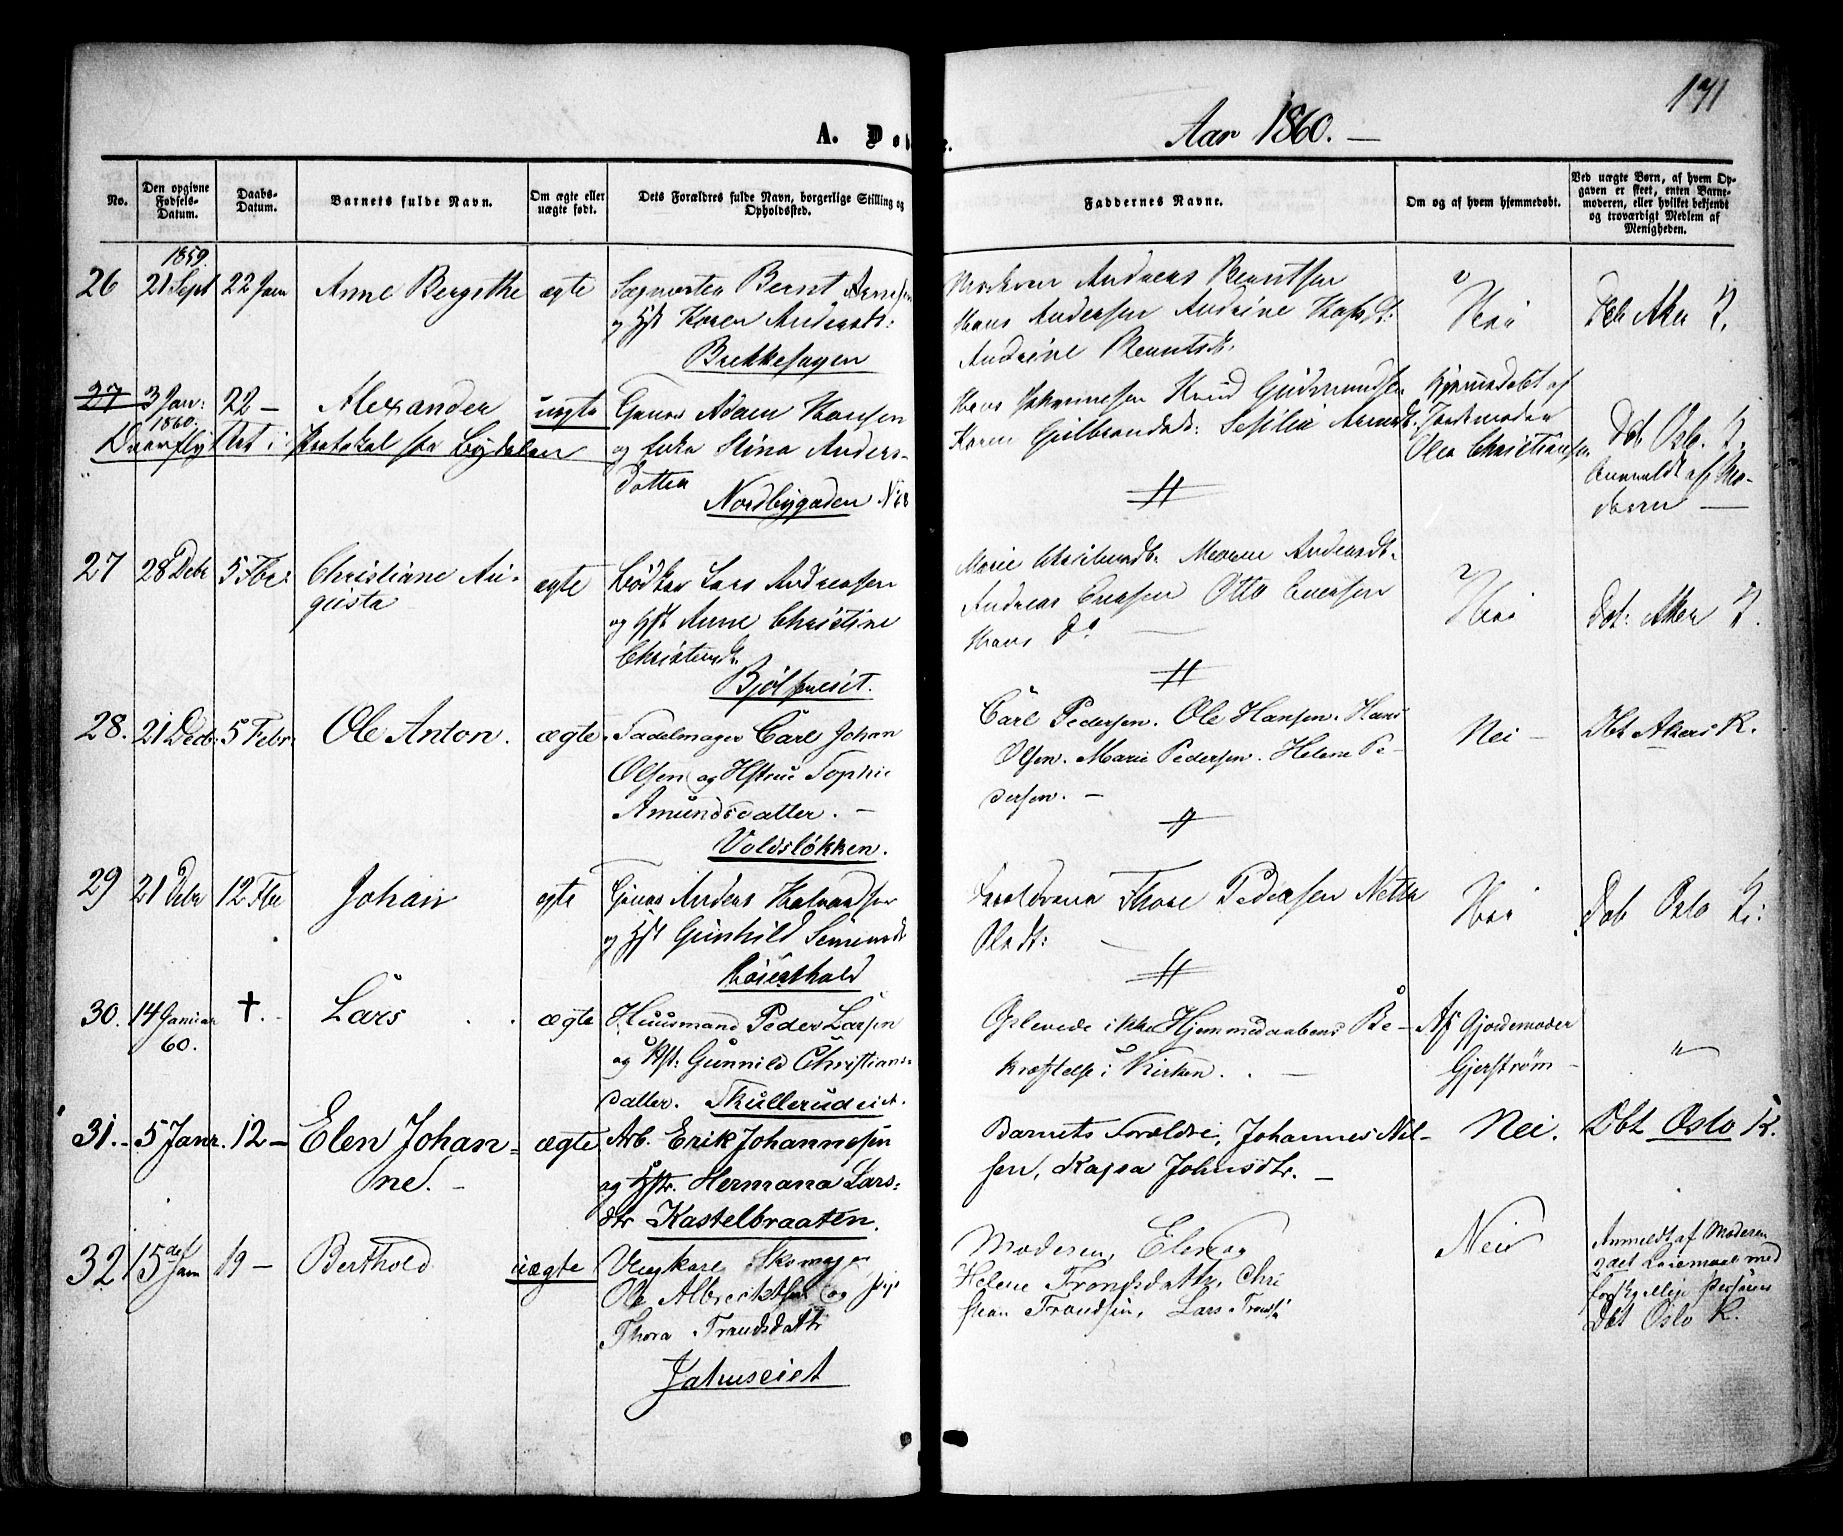 171
A. Døbte.
Aar 1860. —
No.
Den opgivne Fødsels-Datum.
Daabs-Datum.
Barnets fulde Navn.
Om ægte eller uægte født.
Dets Forældres fulde Navn, borgerlige Stilling og Opholdssted.
Faddernes Navne.
Om og af hvem hjemmedøbt.
Ved uægte Børn, af hvem Opgaven er skeet, enten Barnemoderen, eller hvilket bekjendt og troværdigt Medlem af Menigheden.
1859.
26 21 Sept 22 Jan Anne Bergithe ægte Bernt Arnesen
og Hst Karen Andersdt:
Brekkehagen
Andreas Berntsen
Hans Andersen Andrine
Andrine Berntsdt.
Nei
Døb Aker K.
27 3 Jan: 1860. 22 — Alexander uægte Adam Hansen
og Stina Anders-
datter
Nordbygaden N 68
Overflyttet i Protokol for Bydelen
Hans Johannesen Knud Gudmundsen
Karen Gulbrandsdt:
Hjemmedøbt af
Jordmoder
Olea Christiansen
Døb. Oslo. K.
Anmeldt af Mo-
deren —
27 28 Debr 5 Fbr: Christiane Au-
gusta
ægte
Bødker Lars Andreassen
og Hst Anne Christine
Bjølseneiet.
Andreas Otto
Hans Do
Nei
Døb: Aker K.
28. 21 Decb. 5 Febr. Ole Anton. ægte. Sadelmager Carl Johan
Olsen og Hstru Sophie
Amundsdatter. —
Voldsløkken.
Carl Pedersen. Ole Hansen. Hans
Olsen. Marie Pedersen. Helene Pe-
dersen. —
Nei —
Dbt Akers K.
29 21 Debr 12 Fbr Johan ægte Anders Halvorsen
og Hst Gunhild
Forældrene Thore Pedersen
Olsdt:
Nei
Døb Oslo K:
30. 14 Januar 60. †. Lars ægte Huusmand Peder Larsen
og Hst: Gunnild Christians-
datter. Skullerudeiet.
Oplevede ikke Hjemmedaabens Be-
kræftelse i Kirken. —
Af Gjordemoder
Gjerstrøm —
"
31. 5 Janr. 12 — Elen Johan-
ne. —
ægte Arb. Erik Johannesen
og Hstr. Hermana Lars-
dtr Kastelbraaten.
Barnets Forældre, Johannes Nil-
sen, Kajsa Johnsdtr. —
Nei.
Dbt Oslo K.
32 15 de Jan 19 — Berthold uægte Ungkarl Skomager
Ole Albrecktsen og Pige
Thora Trondsdattr
Jahuseiet
Moderen, Elen og
Helene Trondsdattr, Chri
stian Trondsen, Lars Tronds
Nei
Anmeldt af Moderen
2det Leiermaal med
forskjellige Personer
Dbt Oslo K.